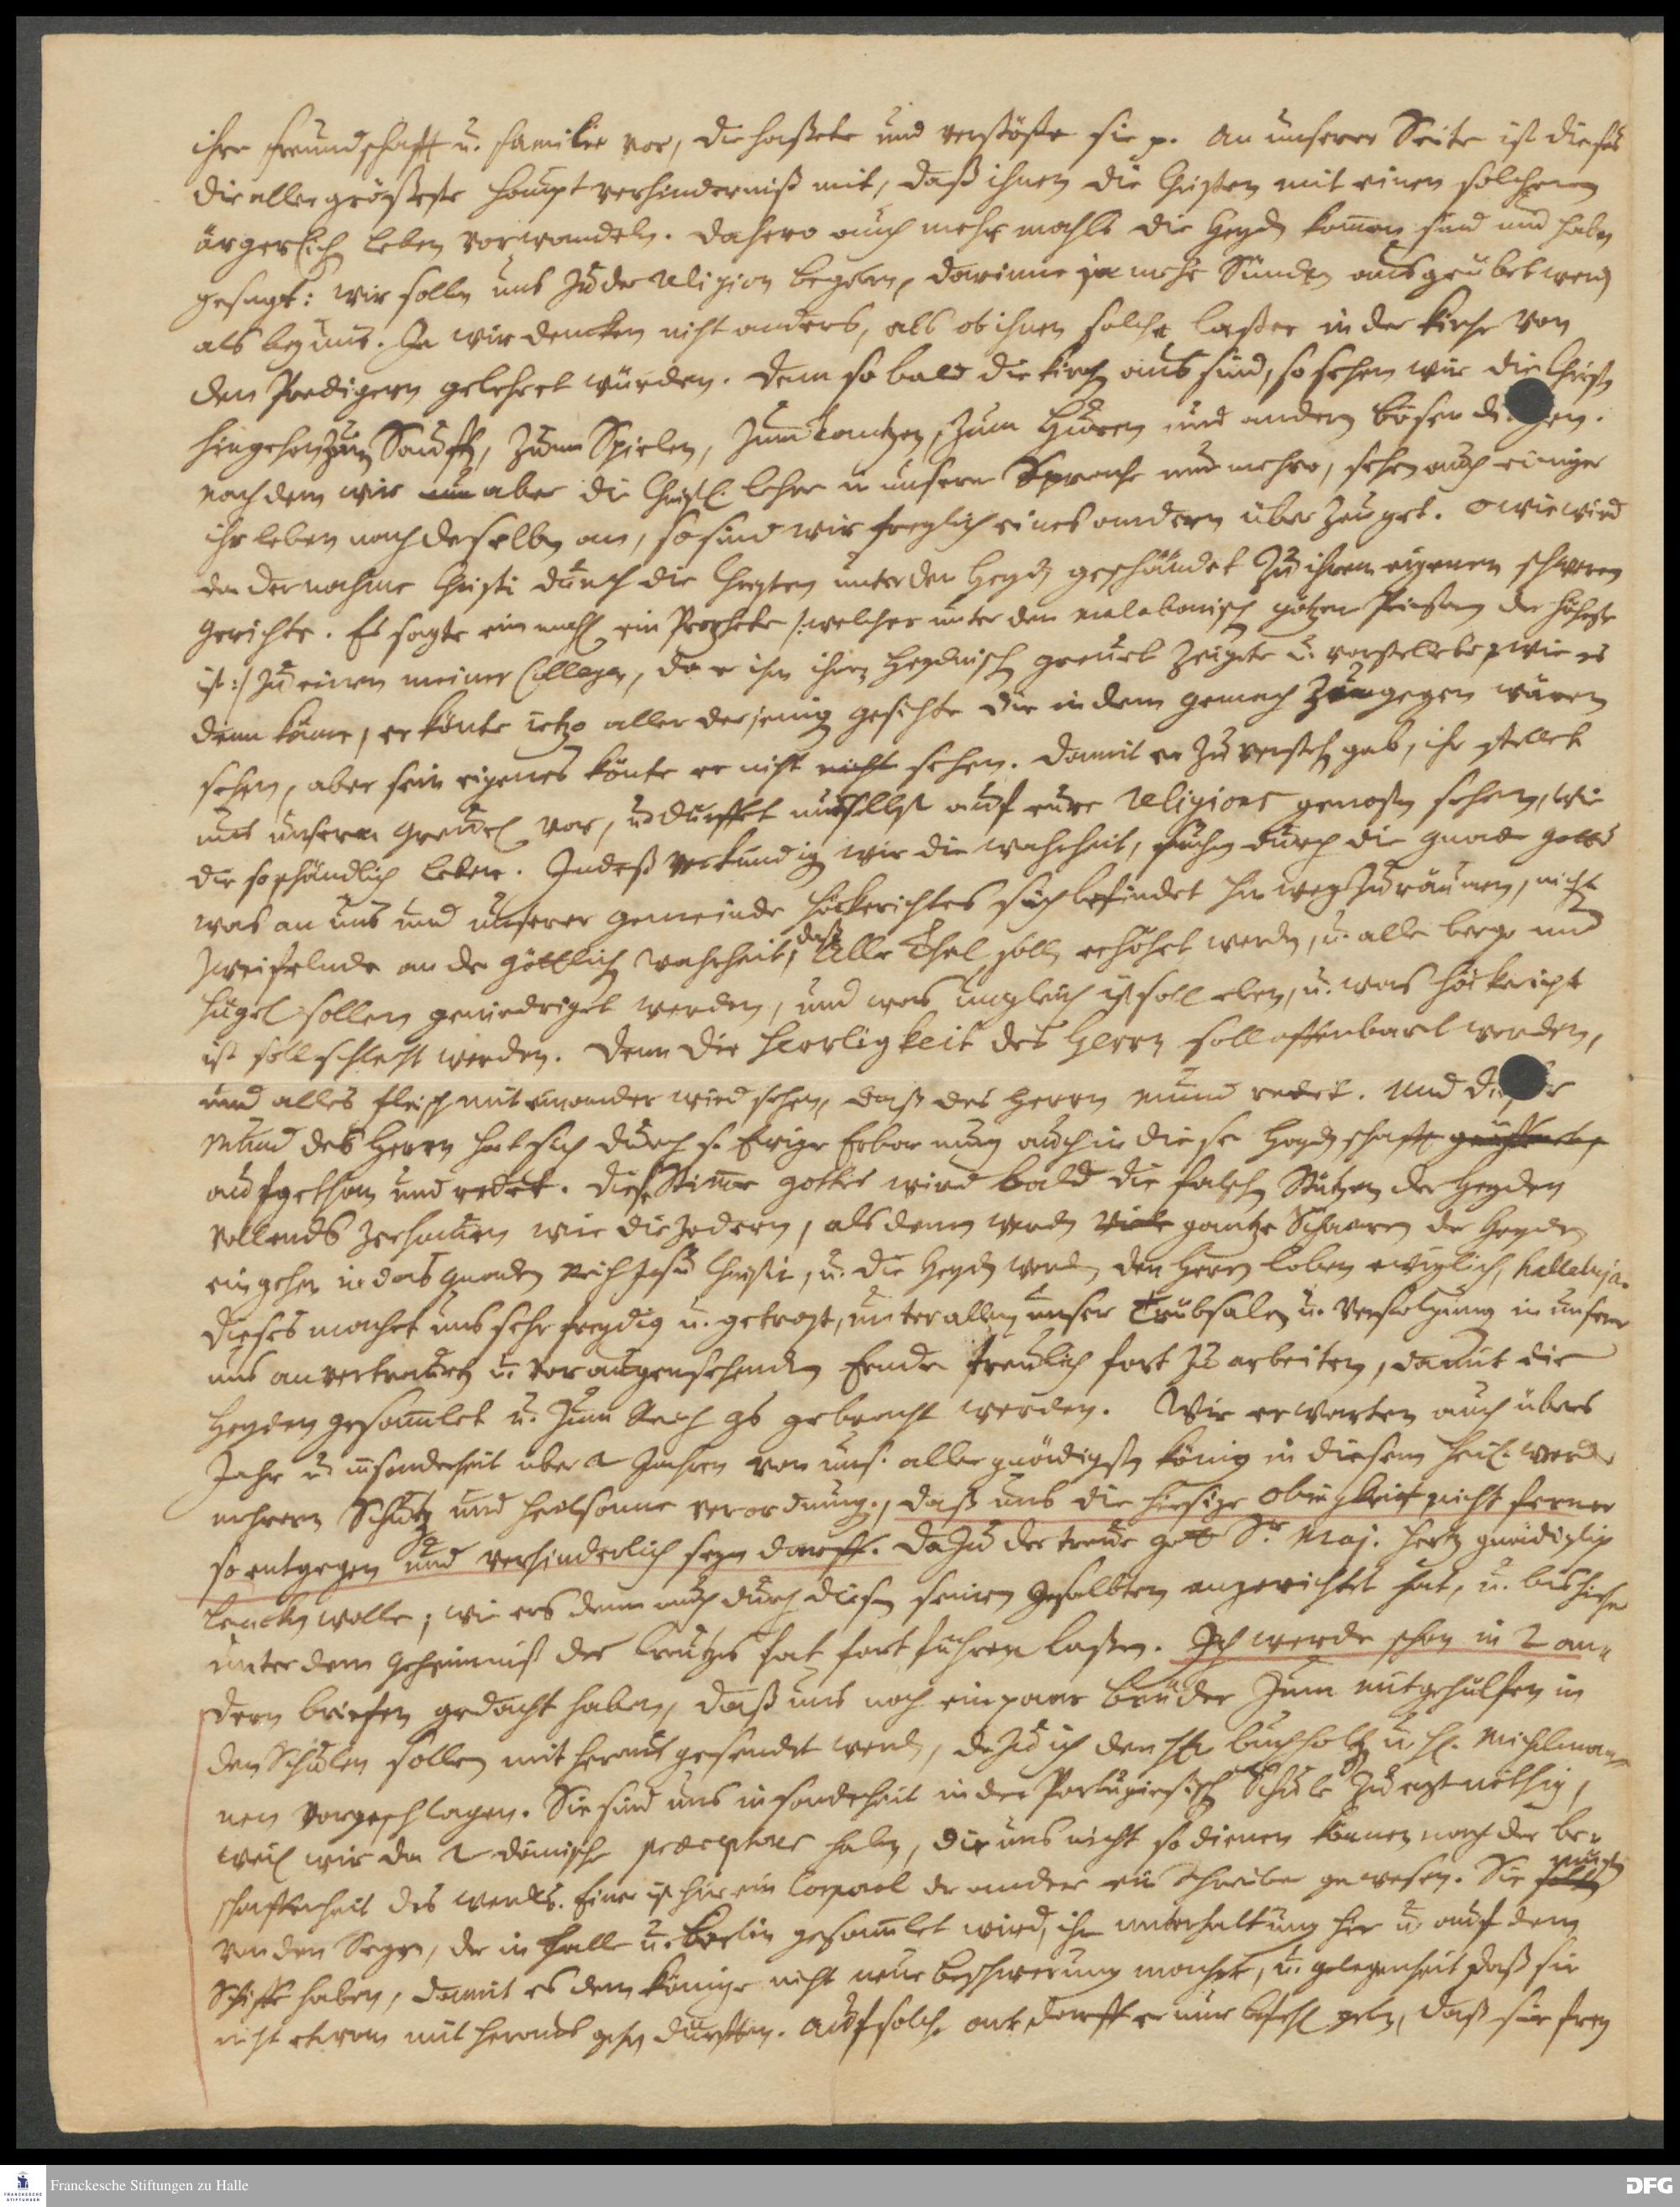 ihre freundschafft u. familie vor, die haßete und verstöste sie p. An unserer Seite ist dieses
die aller größeste haupt verhinderniß mit, daß ihnen die Christen mit einen solchenen
ärgerlich leben vorwandeln. Dahero auch mehrmahls die Heyden kommen sind und haben
gesagt: wir sollen uns zu der religion begeben, darinne ja mehr Sünden ausgeübet werden
als bey uns. Ja wir dencken nicht anders, als ob ihnen solche laster in der Kirche von
den Predigern gelehret würden. Denn so bald die Kirchen aus sind, so sehen wir die Christen
hingehen zum Sauffen, zum Spielen, zum Tantzen, zum Huren und andern bösen dingen.
nachdem wir nun aber die Christl. lehre in unserer Sprache nunmehro, sehen auch einiger
ihr leben nach derselben an, so sind wir freylich eines andern überzeuget. O wie wird
da der nahme Christi durch die Christen unter den Heyden geschändet zu ihrem eigenen schweren
gerichte. Es sagte einmahl ein Prophete /: welcher unter den malabarischen götzen Priestern der höheste
ist :/ zu einen meiner Collegen, da er ihn ihren Heydnischen greuel zeigete u. vorstellete p wie es
denn käme, er könte ietzo aller derjenigen gesichte die in dem gemach zugegen wären
sehen, aber sein eigenes könte er nicht nicht sehen. Damit er zu verstehen gab, ihr stellet
uns unsern Greuel vor, u. dürffet nur selbst auf eure Religions genoßen sehen, wie
die so schändlich leben. Indeß verkündigen wir die wahrheit, suchen durch die gnade Gottes
was an uns und unserer gemeinde höckerichtes sich befindet hinweg zu räumen, nicht
zweifelnde an der göttlichen wahrheit, daß Alle Thal sollen erhöhet werden, u. alle berge und
hügel sollen geniedriget werden, und was ungleich ist soll eben, u. was höckericht
ist soll schlecht werden. Denn die Herrligkeit des Herrn soll offenbart werden,
und alles fleisch mit einander wird sehen, daß des Herrn mund redet. Und dieser
Mund des Herrn hat sich durch s. Ewige Erbarmung auch in diese Heydenschafft
aufgethan und redet. Diese Stimme Gottes wird bald die falschen Stützen der Heyden
vollends zerhauen wie die Zedern, als denn werden viele gantze Schaaren der Heyden
eingehen in das gnaden reich Jesu Christi, u. die Heyden werden den Herrn loben ewiglich, halleluja.
Dieses machet uns sehr freydig u. getrost, unter allen unser Trübsalen u. Verfolgung in unserer
uns anvertrauten u. vor augen sehenden Erndte treulich fort zu arbeiten, damit die
Heyden gesammlet u. zum Reich gs gebracht werden. Wir erwarten auch übers
Jahr u. insonderheit über 2 Jahren von uns. allergnädigsten König in diesem heil. wercke
mehrern Schutz und heilsame verordnung, daß uns die hiesige Obrigkeit nicht ferner
so entgegen und verhinderlich seyn darff. Dazu der treue Gott Sr. Maj. hertz gnädiglich
lencken wolle, wie ers denn auch durch diesen seinen Gesalbten angerichtet hat, u. bishieher
unter dem geheimniß des Creutzes hat fort führen laßen. Ich werde schon in 2 an-
dern briefen gedacht haben, daß uns noch ein paar brüder zum mitgehülfen in
den Schulen sollen mit heraus gesendet werden, dazu ich den H. Buchholtz u. H. Michelman-
nen vorgeschlagen. Sie sind uns insonderheit in der Portugiesischen Schule zu erst nöthig,
weil wir da 2 dänische præceptores haben, die uns nicht so dienen können nach der be-
schaffenheit des wercks. Einer ist hier ein Corporal der andere ein Schreiber gewesen. Sie müsten
von den Segen, der in Halle u. Berlin gesammlet wird, ihr unterhaltung hier u. auf dem
Schiffe haben, damit es dem Könige nicht neue beschwerung machete, u. gelegenheit daß sie
nicht etwan mit heraus gehen dürfften. Auf solche art darff er nur befehl geben, daß sie frey
Franckesche Stiftungen zu Halle
DFG